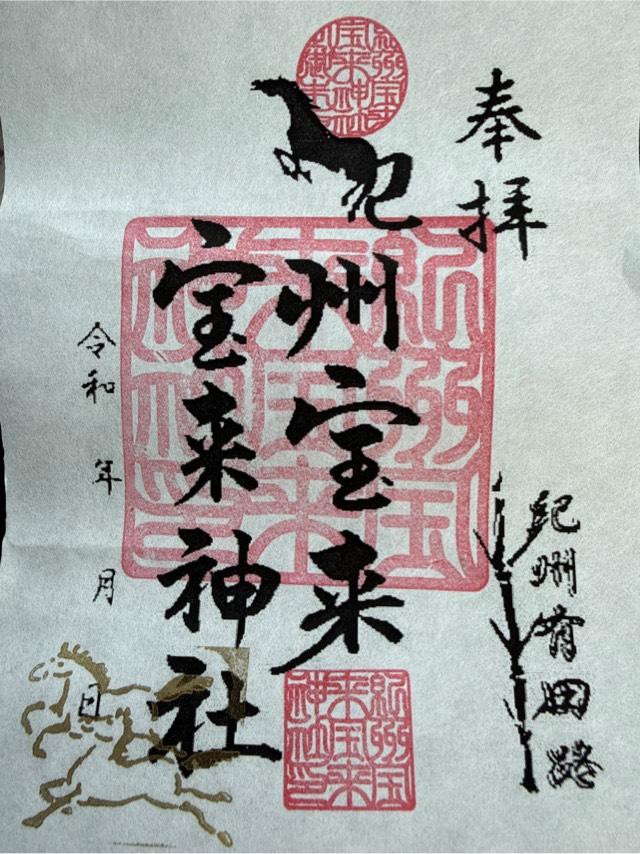 奉拝
紀州有田路
紀州宝来
宝来神社
令和 年 月 日
紀州宝
来宝来
神社印
紀州宝
来宝来
神社印